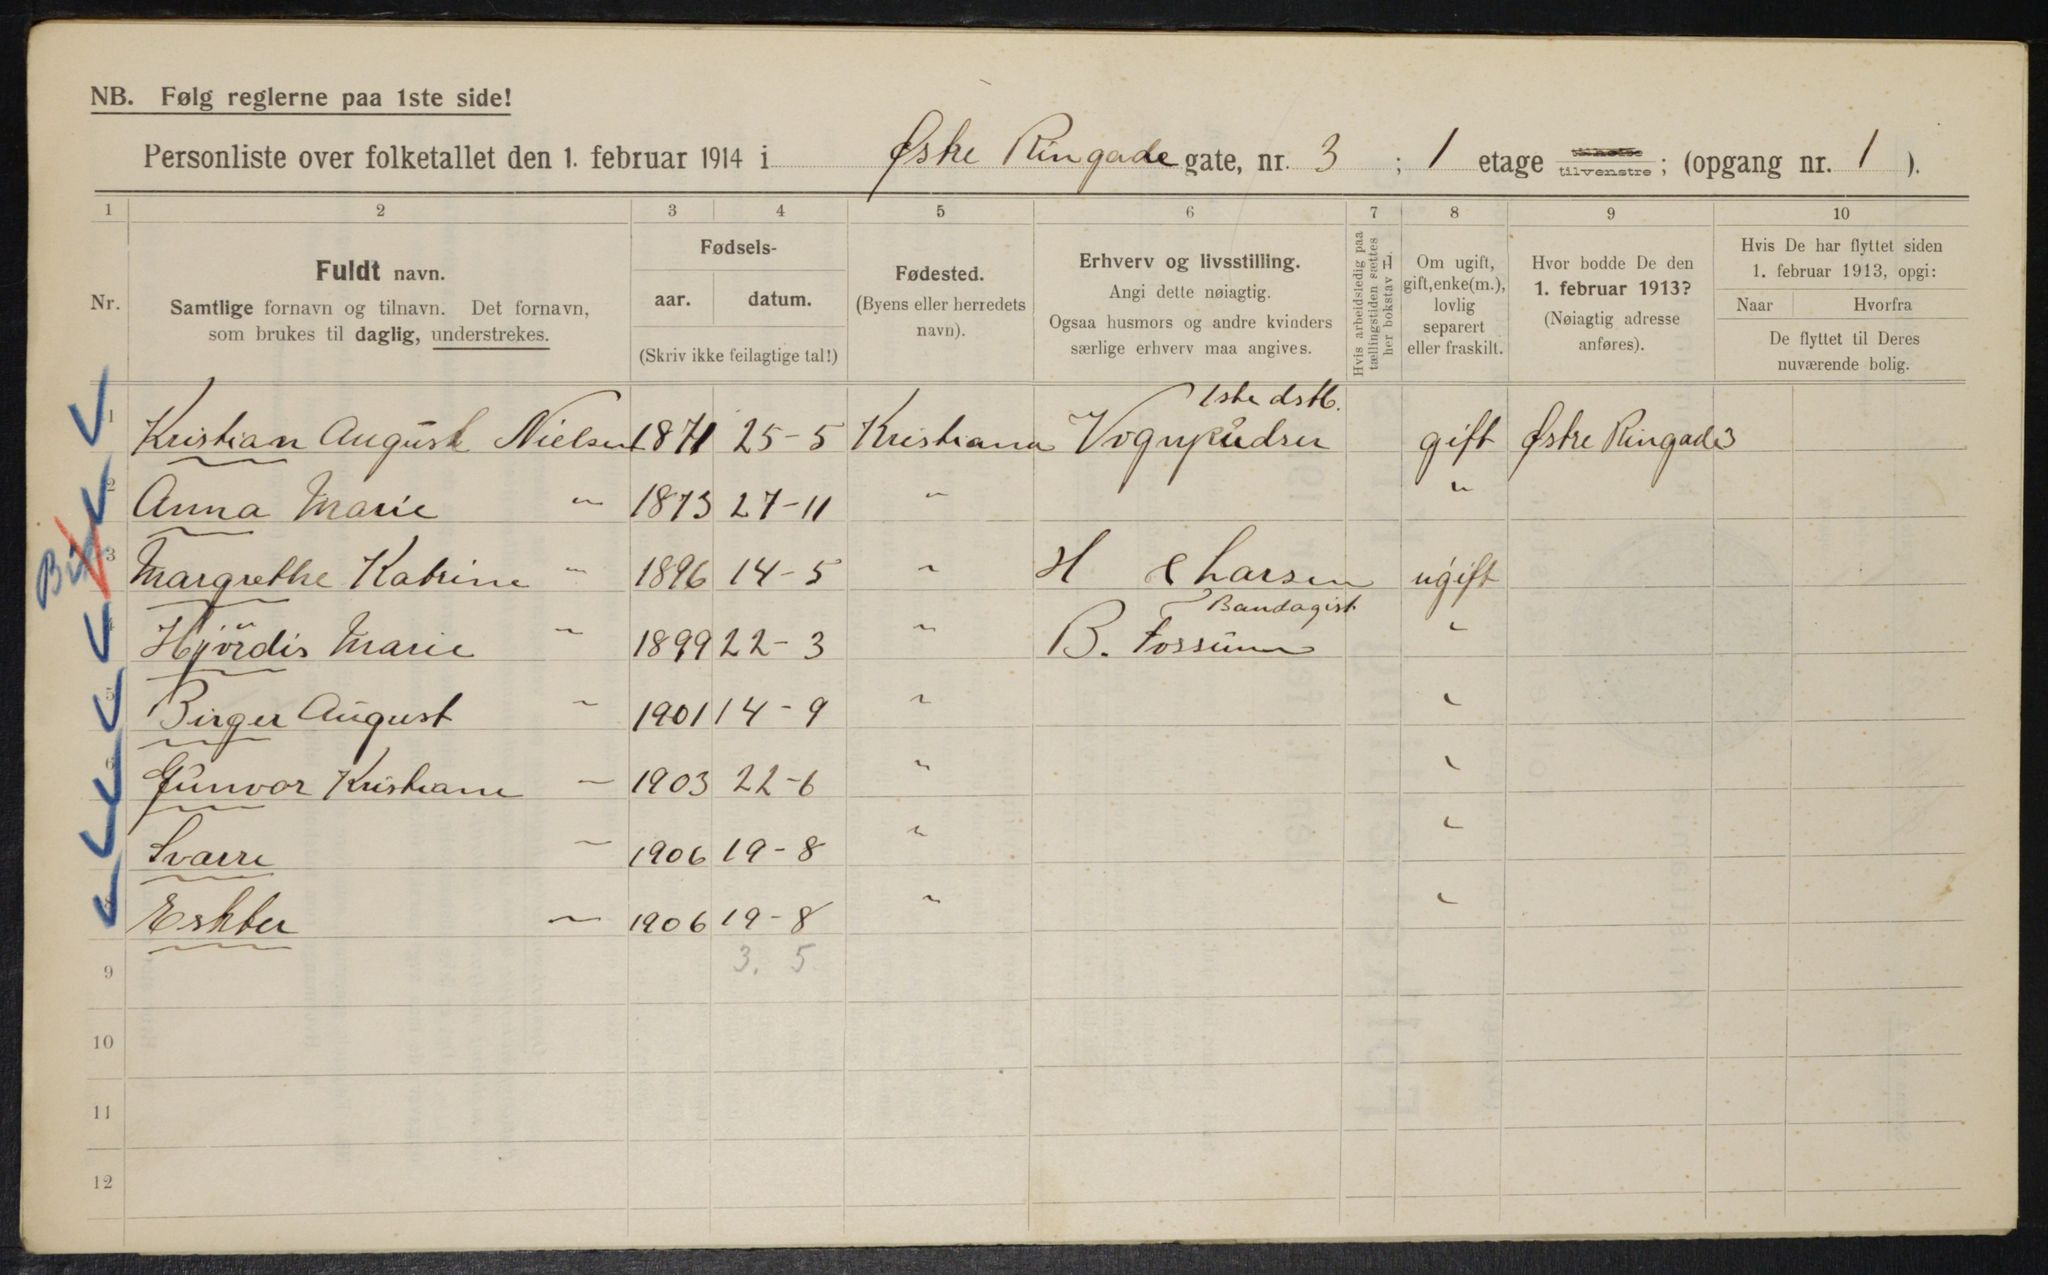 NB. Følg reglerne paa 1ste side!
Personliste over folketallet den 1. februar 1914 i Østre Ringade gate, nr. 3 ; 1 etage tilvenstre ; (opgang nr. 1 ).
1 2 3 4 5 6 7 8 9 10
Nr.
Fuldt navn.
Samtlige fornavn og tilnavn. Det fornavn,
som brukes til daglig, understrekes.
Fødsels-
aar. datum.
(Skriv ikke feilagtige tal!)
Fødested.
(Byens eller herredets
navn).
Erhverv og livsstilling.
Angi dette nøiagtig.
Ogsaa husmors og andre kvinders
særlige erhverv maa angives.
Hvis arbeidsledig paa
tællingstiden sættes
her bokstav L.
Om ugift,
gift, enke(m.),
lovlig
separert
eller fraskilt.
Hvor bodde De den
1. februar 1913?
(Nøiagtig adresse
anføres).
Hvis De har flyttet siden
1. februar 1913, opgi:
Naar Hvorfra
De flyttet til Deres
nuværende bolig.
1 Kristian August Nielsen 1871 25-5 Kristiana Vognpudser gift Østre Ringade 3
2 Anna Marie " 1873 27-11 " "
3 Margrethe Katrine " 1896 14-5 " H Larsen ugift
Bandagist
4 Hjördis Marie " 1899 22-3 " B. Fossum "
5 Birger August " 1901 14-9 " "
6 Gunvor Kristiane " 1903 22-6 " "
Svarre " 1906 19-8 " "
Esther " 1906 19-8 " "
3. 5
9
10
11
12